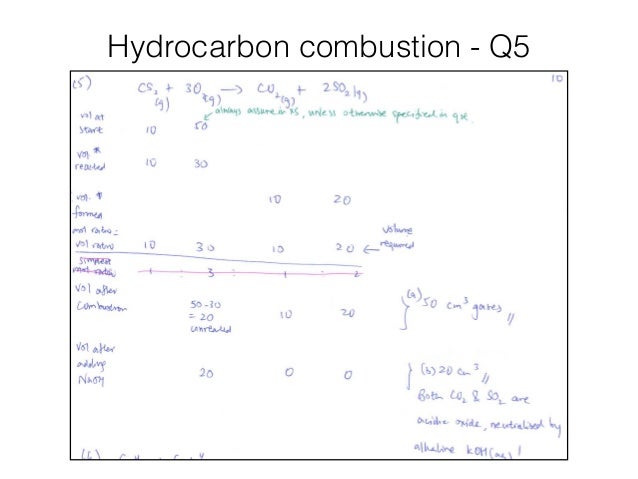 Hydrocarbon combustion - Q5
10
(5) CS2(g) + 3O2(g) → CO2(g) + 2SO2(g)
vol at start 10 50 always assume in XS, unless otherwise specified in qn.
vol * reacted 10 30
vol. * formed 10 20
mol ratio =
vol ratio 10 30 10 20 ← volume required
simplest mol ratio 1 : 3 : 1 : 2
vol after combustion 50-30 = 20 unreacted 10 20 (a) 50 cm3 gases //
vol after adding NaOH 20 0 0 (b) 20 cm3 //
Both CO2 & SO2 are
acidic oxide, neutralised by
alkaline KOH(aq)!